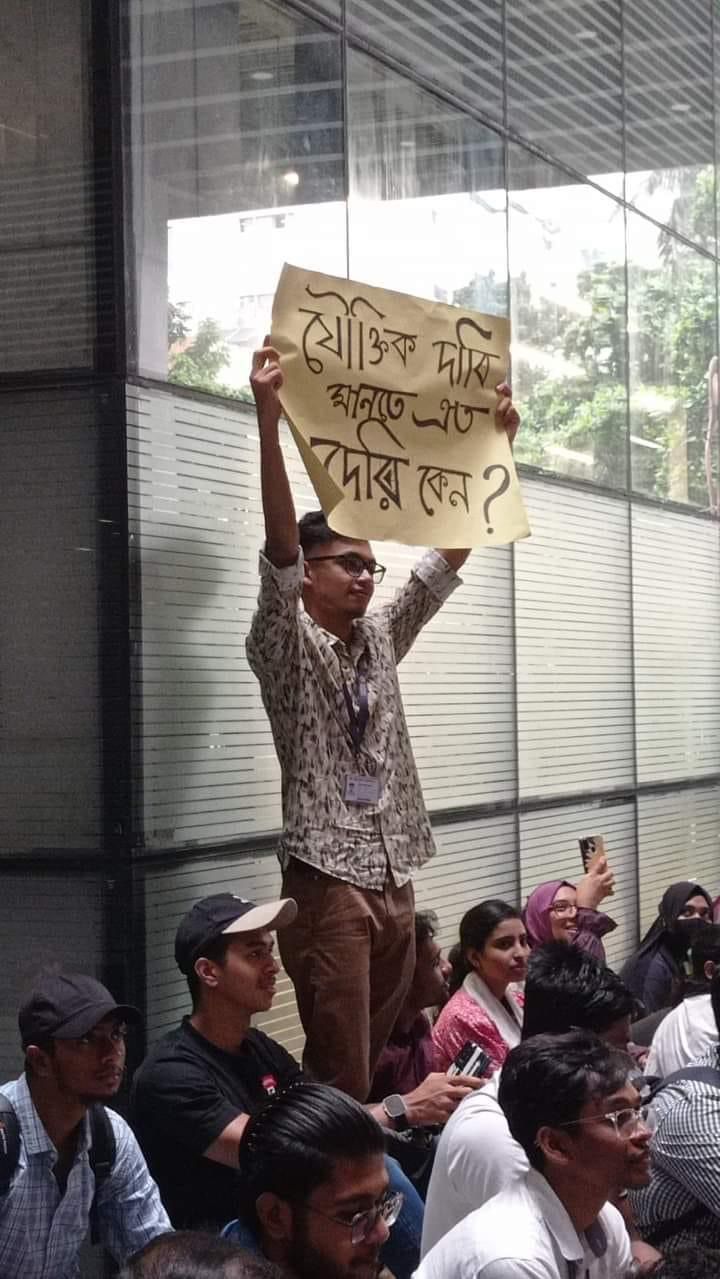 যৌক্তিক দাবি
মানতে এত
দেরি কেন?